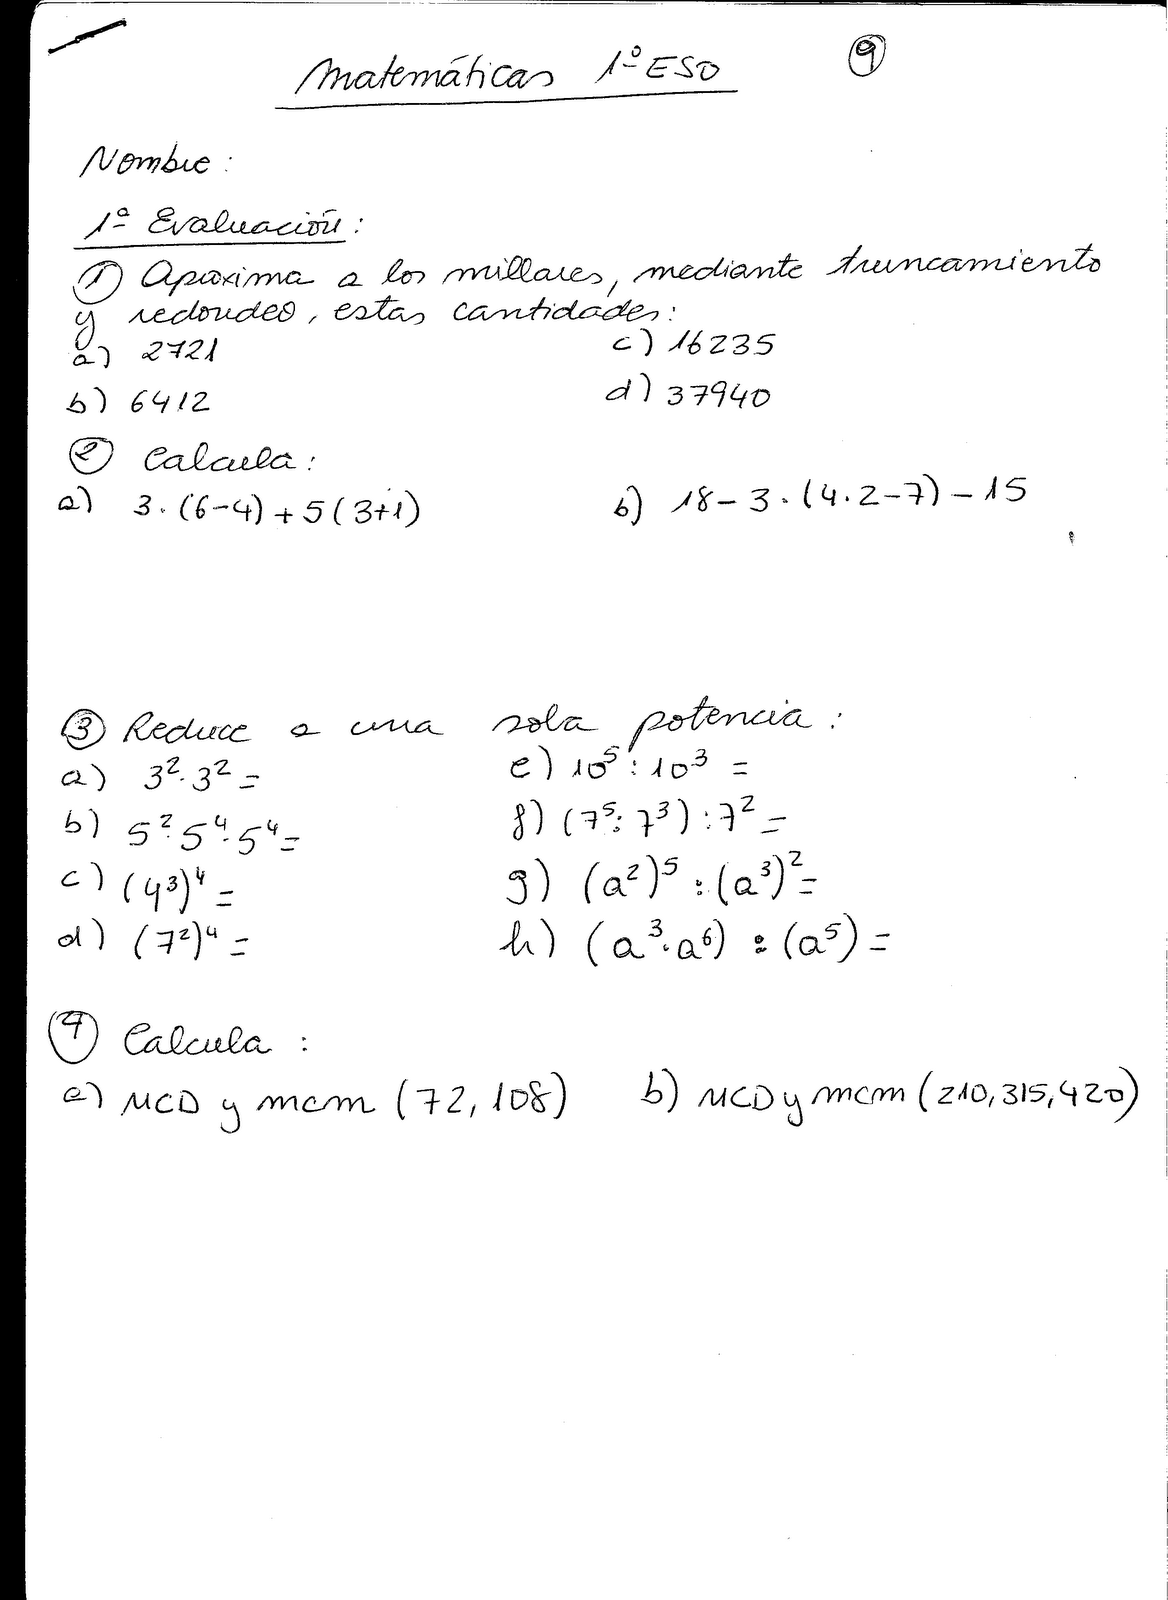 Matemáticas 1º ESO 9
Nombre:
1ª Evaluación:
1 Aproxima a los millares, mediante truncamiento
y redondeo, estas cantidades:
a) 2721 c) 16235
b) 6412 d) 37940
2 Calcula:
a) 3·(6-4)+5(3+1) b) 18-3·(4·2-7)-15
3 Reduce a una sola potencia:
a) 3²·3²= e) 10⁵:10³=
b) 5²·5⁴·5⁴= f) (7⁵:7³):7²=
c) (4³)⁴= g) (a²)⁵:(a³)²=
d) (7²)⁴= h) (a³·a⁶):(a⁵)=
4 Calcula:
a) MCD y mcm (72, 108) b) MCD y mcm (210, 315, 420)